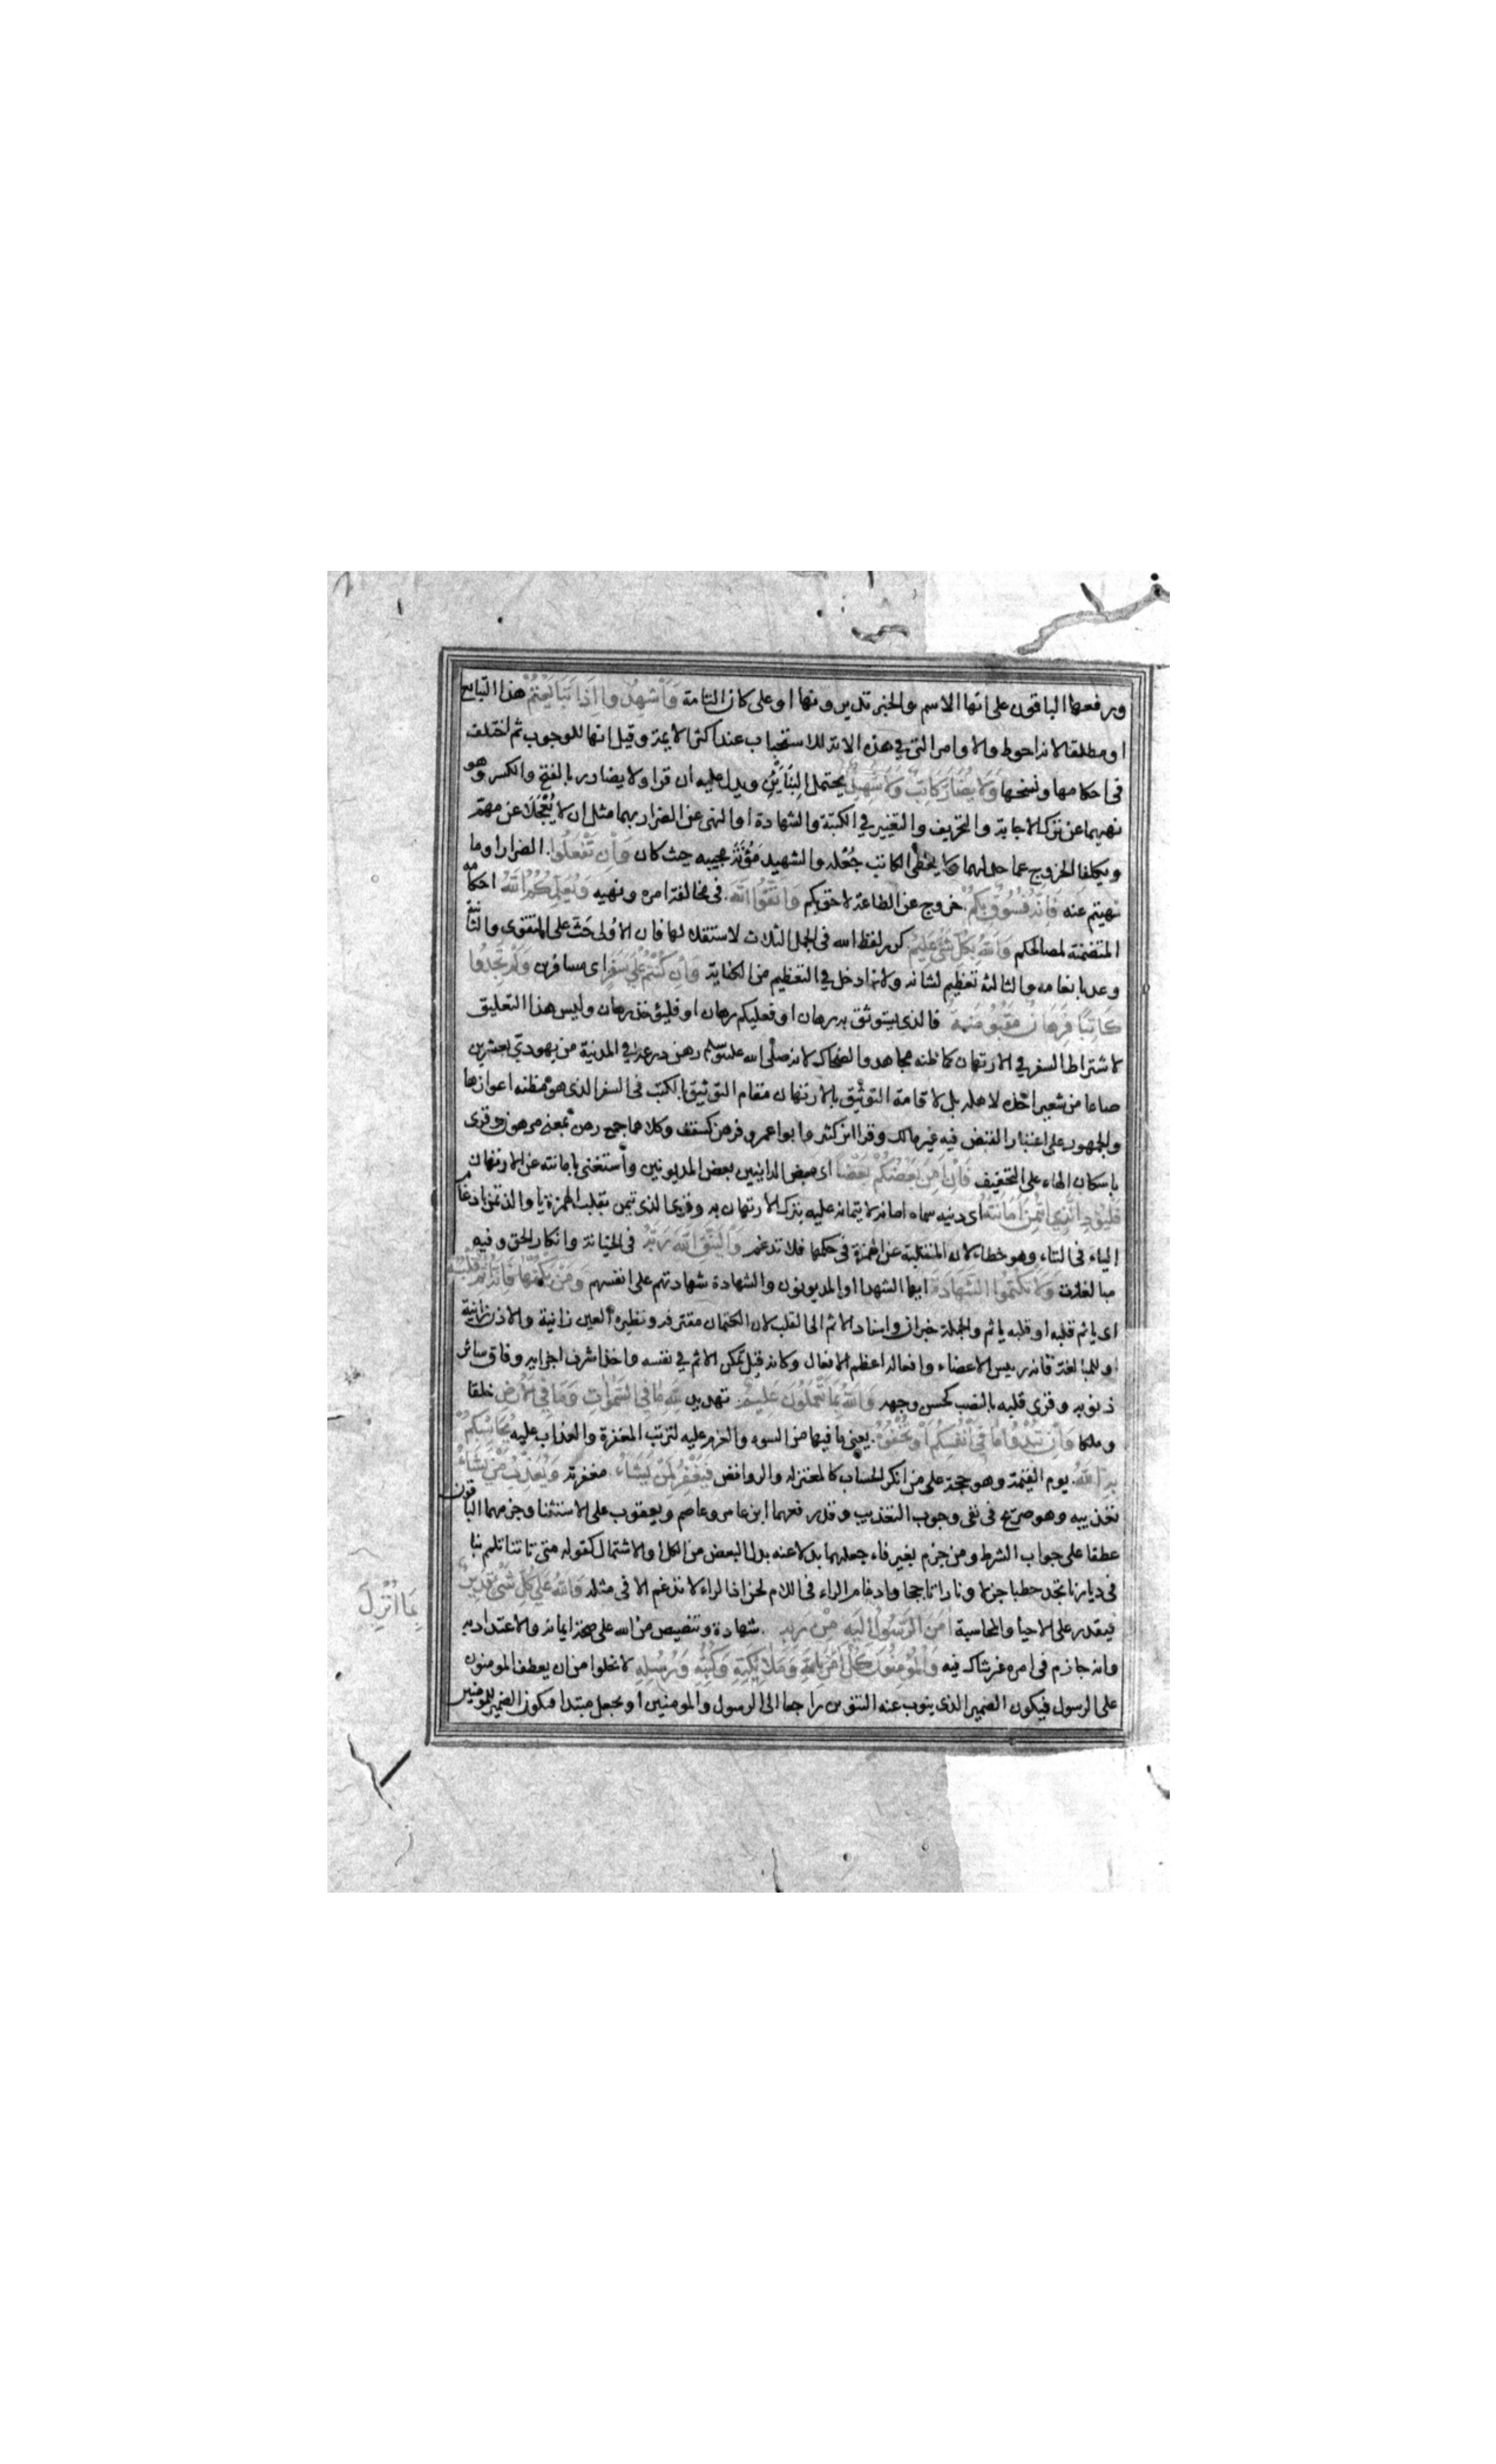 ورفعها الباقون على انها الاسم والخبر تديرونها او على كان التامة وَأَشْهِدُوا إِذَا تَبَايَعْتُمْ هذا التبايع
او مطلقا لانه احوط والاوامر التي في هذه الاية للاستحباب عند اكثر الايمة وقيل انها للوجوب ثم اختلف
في احكامها ونسخها وَلَا يُضَارَّ كَاتِبٌ وَلَا شَهِيدٌ يحتمل البِنَايَيْنِ ويدل عليه ان قرا ولا يضارر بالفتح والكسر وهو
نهيهما عن ترك الاجابة والتحريف والتغيير في الكتبة والشهادة او النهى عن الضرار بهما مثل ان لا يُعْجَلَا عن مهم
ويكلفا الخروج عما حد لهما ولا يعطى الكاتب جُعْله والشهيد مَؤُنَةَ مجيبه حيث كان وَإِنْ تَفْعَلُوا الضرار او ما
نهيتم عنه فَإِنَّهُ فُسُوقٌ بِكُمْ خروج عن الطاعة لاحق بكم وَاتَّقُوا اللَّهَ في مخالفة امره ونهيه وَيُعَلِّمُكُمُ اللَّهُ احكامه
المتضمنة لمصالحكم وَاللَّهُ بِكُلِّ شَيْءٍ عَلِيمٌ كرر لفظ الله في الجمل الثلاث لاستقلالها فان الاولى حَثّ على التقوى والثانية
وعد بانعامه والثالثة تعظيم لشانه ولانه ادخل في التعظيم من الكناية وَإِنْ كُنْتُمْ عَلَى سَفَرٍ اى مسافرين وَلَمْ تَجِدُوا
كَاتِبًا فَرِهَانٌ مَقْبُوضَةٌ فالذي يستوثق به رهان او فعليكم رهان او فليؤخذ رهان وليس هذا التعليق
لاشتراط السفر في الارتهان كما ظنه مجاهد والضحاك لانه صلى الله عليه وسلم رهن درعه في المدينة من يهودي بعشرين
صاعا من شعير اخذه لاهله بل لاقامة التوثيق بالارتهان مقام التوثيق بالكتب في السفر الذي هو مظنه اعوازها
والجمهور على اعتبار القبض فيه غير مالك وقرا ابن كثير وابو اعمرو فرهن كسقف وكلاهما جمع رهن بمعنى مرهون وقرى
باسكان الهاء على التخفيف فَإِنْ أَمِنَ بَعْضُكُمْ بَعْضًا اى بعض الداينين بعض المديونين واستغنى بامانته عن الارتهان
فَلْيُؤَدِّ الَّذِي اؤْتُمِنَ أَمَانَتَهُ اى دينه سماه امانة لايتمانه عليه بترك الارتهان به وقرى الذي تيمن بقلب الهمزة ياء والذ تمن بادغام
الياء في التاء وهو خطاء لان المنقلبة عن الهمزة في حكمها فلا تدغم وَلْيَتَّقِ اللَّهَ رَبَّهُ في الخيانة وانكار الحق وفيه
مبالغات وَلَا تَكْتُمُوا الشَّهَادَةَ ايها الشهدا او المديونون والشهادة شهادتهم على انفسهم وَمَنْ يَكْتُمْهَا فَإِنَّهُ آثِمٌ قَلْبُهُ
اى ياثم قلبه او قلبه ياثم والجملة خبر ان واسناد الاثم الى القلب لان الكتمان مقترفه ونظيره العين زانية والاذن زانية
او للمبالغة فانه رييس الاعضاء وافعاله اعظم الافعال وكانه قيل تمكن الاثم في نفسه واخذ اشرف اجزايه وفاق ساير
ذنوبه وقرى قلبه بالنصب كحسن وجهه وَاللَّهُ بِمَا تَعْمَلُونَ عَلِيمٌ تهديد لِلَّهِ مَا فِي السَّمَوَاتِ وَمَا فِي الْأَرْضِ خلقا
وملكا وَإِنْ تُبْدُوا مَا فِي أَنْفُسِكُمْ أَوْ تُخْفُوهُ يعنى ما فيها من السوء والعزم عليه لترتب المغفرة والعذاب عليه يُحَاسِبْكُمْ
بِهِ اللَّهُ يوم القيمة وهو حجة على من انكر الحساب كالمعتزله والروافض فَيَغْفِرُ لِمَنْ يَشَاءُ مغفرته وَيُعَذِّبُ مَنْ يَشَاءُ
تعذيبه وهو صريح في نفى وجوب التعذيب وقد رفعهما ابن عامر وعاصم ويعقوب على الاستثنا وجزمهما الباقون
عطفا على جواب الشرط ومن جزم بغير فاء جعلهما بدلا عنه بدل البعض من الكل او الاشتمال كقوله متى تاتنا تلمم بنا
في ديارنا تجد حطبا جزلا ونارا تاججا وادغام الراء في اللام لحن اذ الراء لا تدغم الا في مثله وَاللَّهُ عَلَى كُلِّ شَيْءٍ قَدِيرٌ
فيقدر على الاحيا والمحاسبة آمَنَ الرَّسُولُ إِلَيْهِ مِنْ رَبِّهِ شهادة وتنصيص من الله على صحة ايمانه والاعتداد به
بِمَا أُنْزِلَ
وانه جازم في امره غير شاك فيه وَالْمُؤْمِنُونَ كُلٌّ آمَنَ بِاللَّهِ وَمَلَائِكَتِهِ وَكُتُبِهِ وَرُسُلِهِ لا يخلوا من ان يعطف المومنون
على الرسول فيكون الضمير الذي ينوب عنه التنوين راجعا الى الرسول والمومنين او يجعل مبتدا فيكون الضمير للمومنين